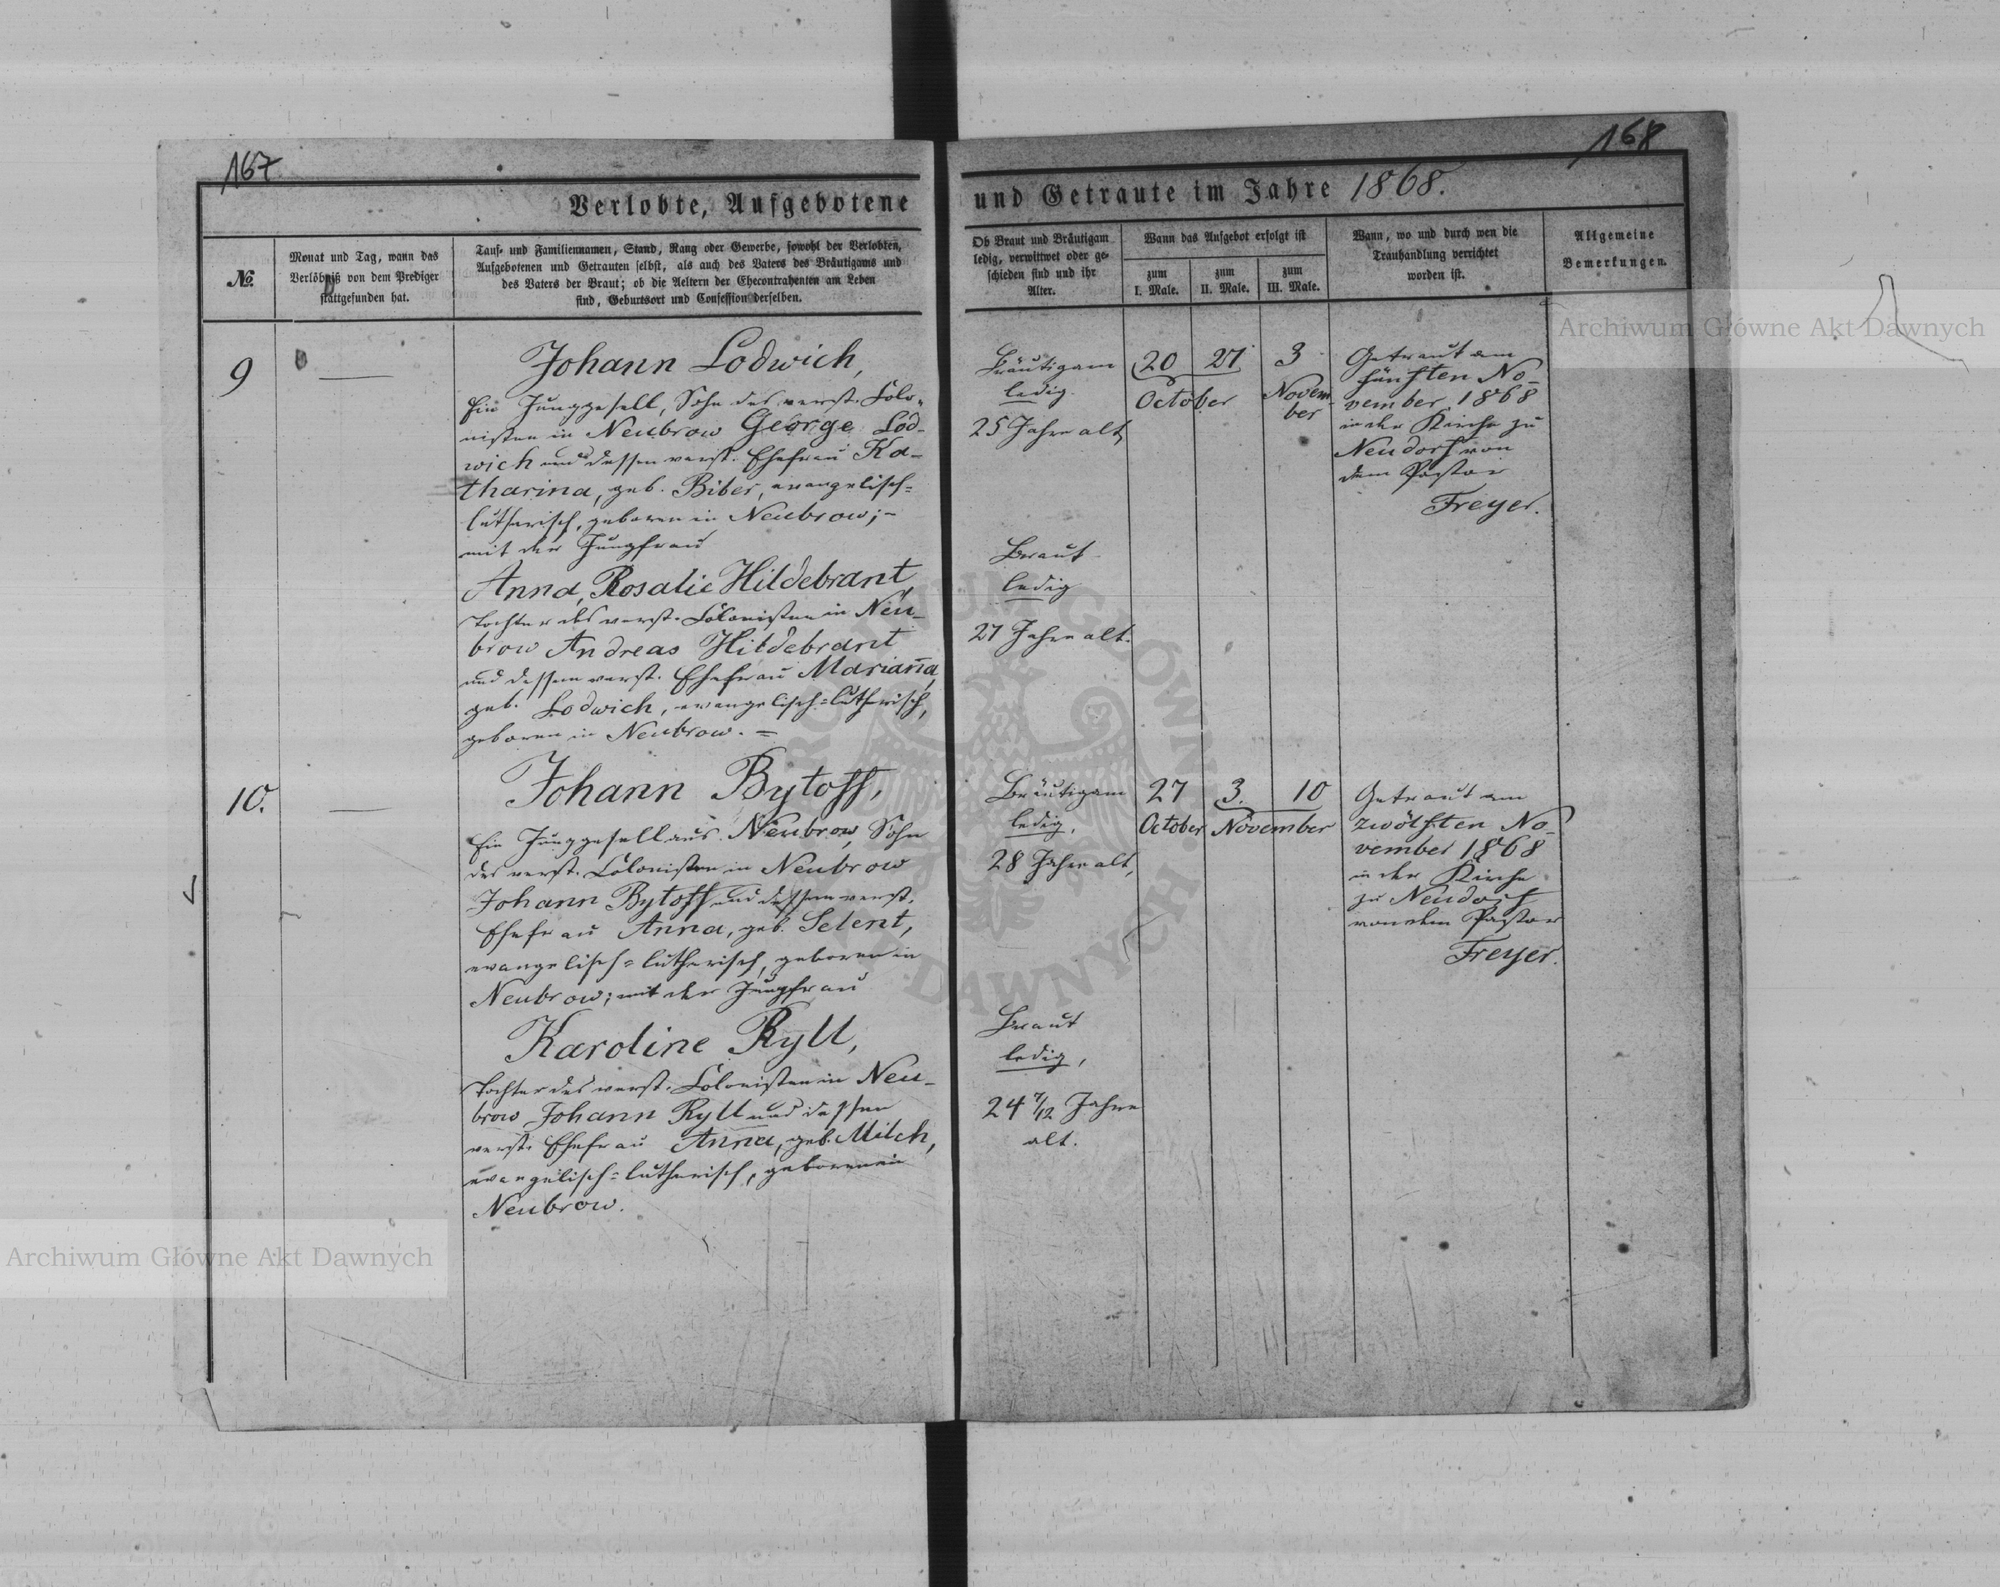 167
168
Verlobte, Aufgebotene und Getraute im Jahre 1868.
№.
Monat und Tag, wann das
Verlöbniß von dem Prediger
stattgefunden hat.
Tauf- und Familiennamen, Stand, Rang oder Gewerbe, sowohl der Verlobten,
Aufgebotenen und Getrauten selbst, als auch des Vaters des Bräutigams und
des Vaters der Braut; ob die Aeltern der Ehecontrahenten am Leben
sind, Geburtsort und Confession derselben.
Ob Braut und Bräutigam
ledig, verwittwet oder ge-
schieden sind und ihr
Alter.
Wann das Aufgebot erfolgt ist
zum
I. Male.
zum
II. Male.
zum
III. Male.
Wann, wo und durch wen die
Trauhandlung verrichtet
worden ist.
Allgemeine
Bemerkungen.
9
Johann Lodwich,
Ein Junggesell, Sohn des verst. Colo-
nisten in Neubrow George Lod-
wich und dessen verst. Ehefrau Ka-
tharina, geb. Biber, evangelisch-
lutherisch, geboren in Neubrow; -
mit der Jungfrau
Anna, Rosalie Hildebrant,
Tochter des verst. Colonisten in Neu-
brow Andreas Hildebrant
und dessen verst. Ehefrau Mariana,
geb. Lodwich, evangelisch-lutherisch,
geboren in Neubrow. -
Bräutigam
ledig.
25 Jahre alt,
Braut
ledig
27 Jahre alt.
20 27
October
3
Novem-
ber
Getraut am
fünften No-
vember 1868
in der Kirche zu
Neudorf von
dem Pastor
Freyer.
10.
Johann Bytoff,
Ein Junggesell aus Neubrow, Sohn
des verst. Colonisten in Neubrow
Johann Bytoff und dessen verst.
Ehefrau Anna, geb. Selent,
evangelisch-lutherisch, geboren in
Neubrow; mit der Jungfrau
Karoline Ryll,
Tochter des verst. Colonisten in Neu-
brow Johann Ryll und dessen
verst. Ehefrau Anna, geb. Milch,
evangelisch-lutherisch, geboren in
Neubrow.
Bräutigam
ledig,
28 Jahre alt,
Braut
ledig,
24 7/12 Jahre
alt.
27
October
3. 10
November
Getraut am
zwölften No-
vember 1868
in der Kirche
zu Neudorf
von dem Pastor
Freyer.
Archiwum Główne Akt Dawnych
Archiwum Główne Akt Dawnych